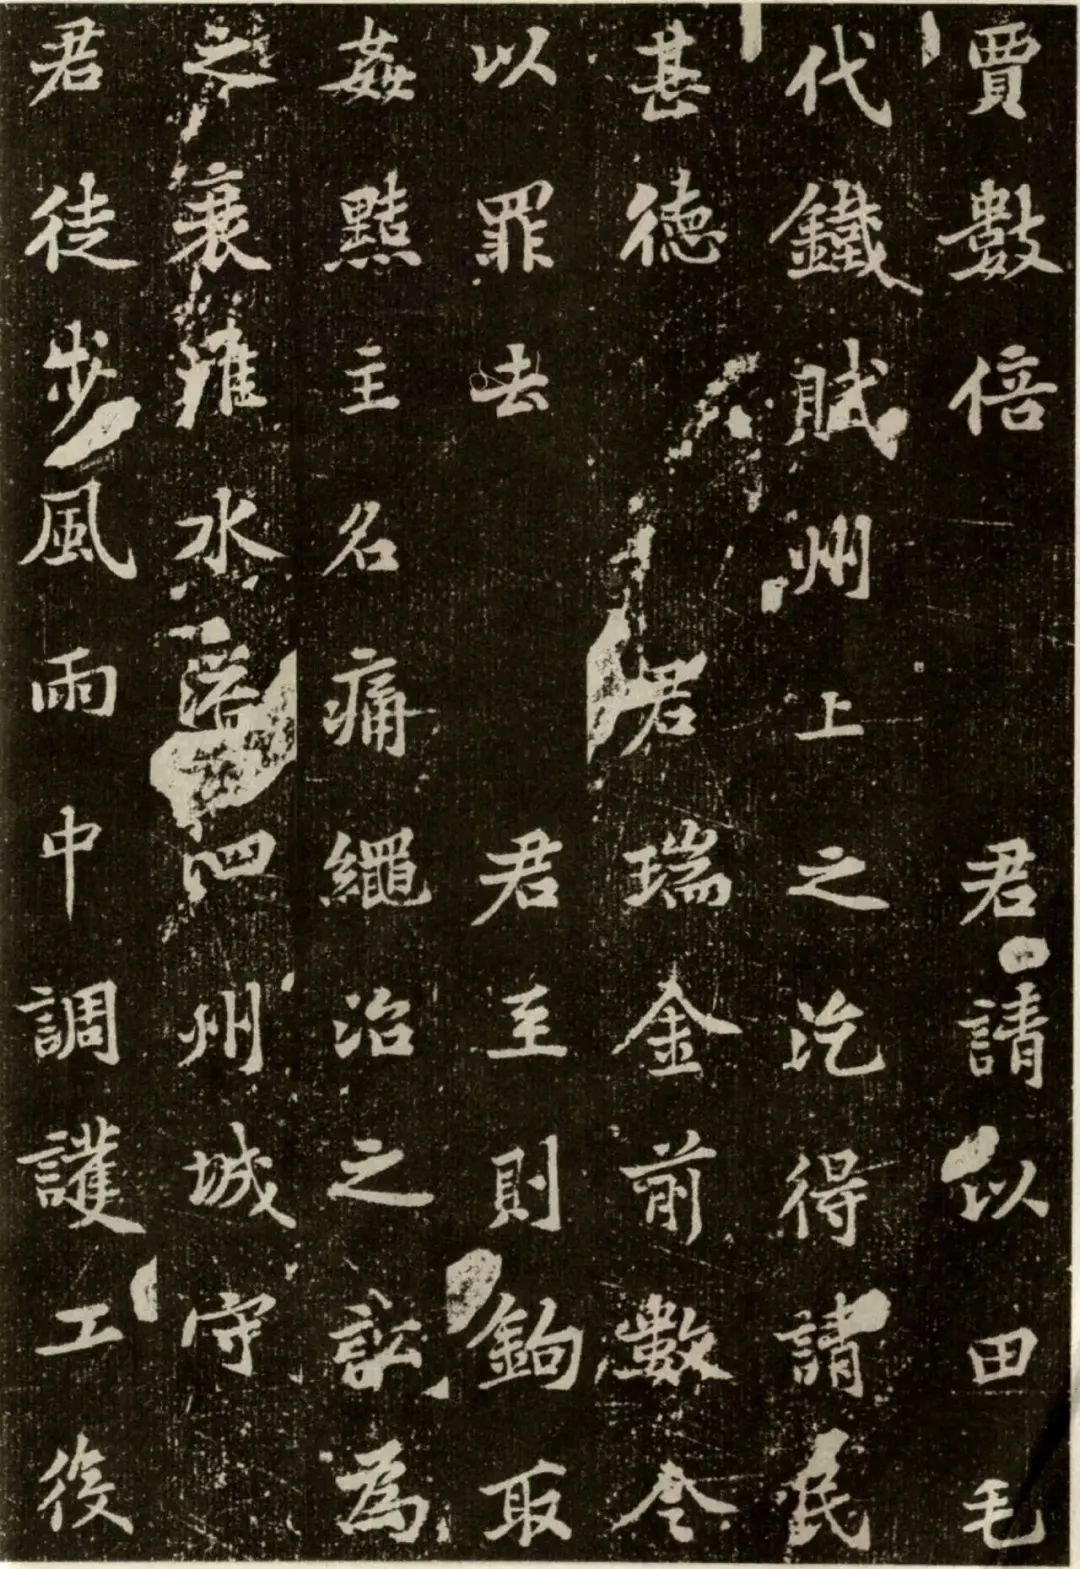 賈數倍君請以田毛
代鐵賦州上之汔得請民
甚德君瑞金前數令
以罪去君至則鉤取
姦黠主名痛繩治之訖爲
之衰濉水溢泗州城守
君徒步風雨中調護工役